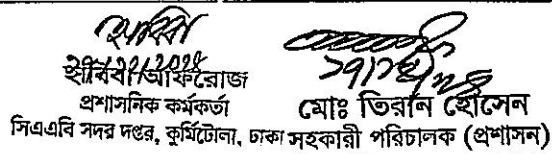 ২৭/১১/২০২৪
আফরোজ
প্রশাসনিক কর্মকর্তা
সিএএবি সদর দপ্তর, কুর্মিটোলা, ঢাকা
মোঃ তিরান হোসেন
সহকারী পরিচালক (প্রশাসন)